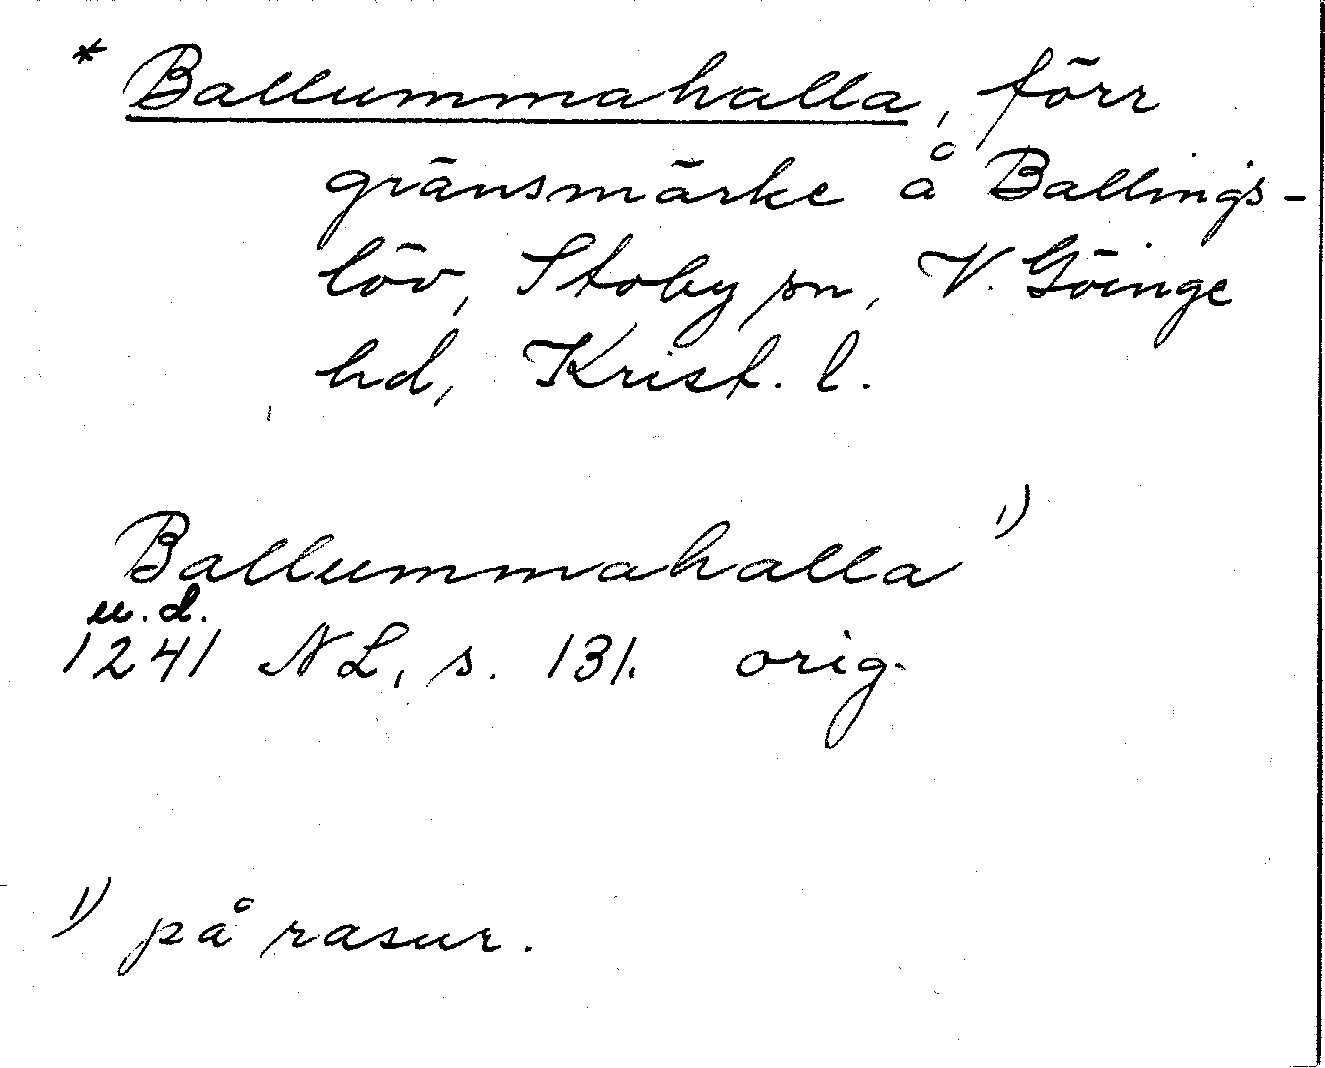 * Ballummahalla, förr
gränsmärke å Ballings-
löv, Stoby sn, V. Göinge
hd, Krist. l.
Ballummahalla 1)
u. d.
1241 NL, s. 131. orig.
1) på rasur.